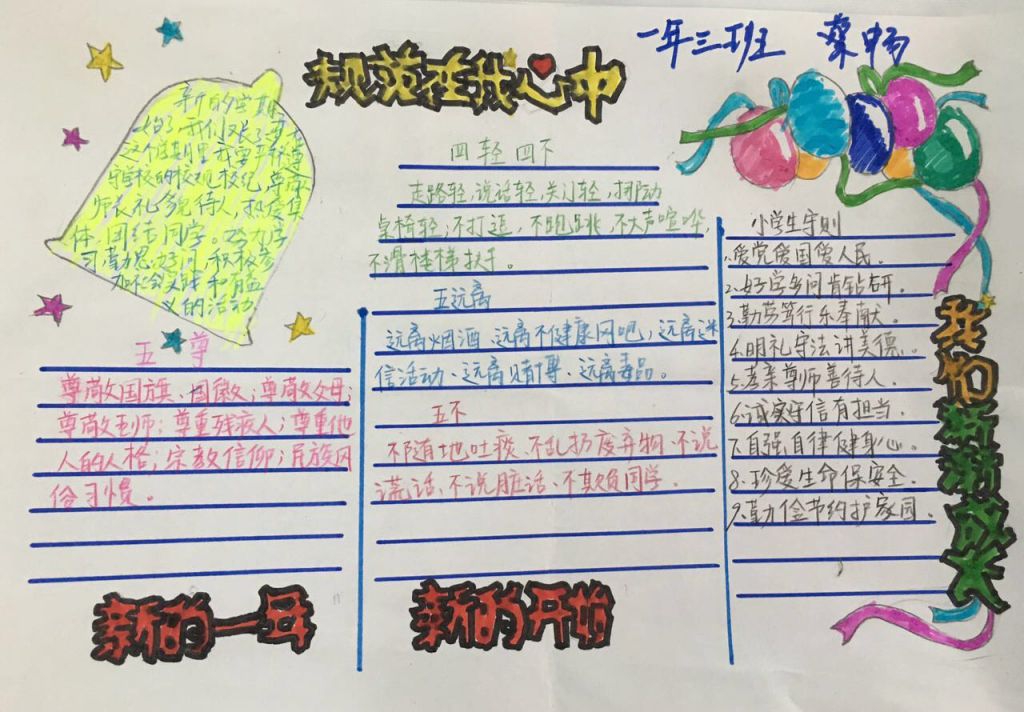 一年三班 蔡畅
规范在我心中
新的学期
这个学期里我要严格遵
守学校的校规校纪,尊敬
师长礼貌待人,热爱集
体,团结同学。努力学
习勤思
义的活动
五 尊
尊敬国旗、国徽;尊敬父母;
尊敬老师;尊重残疾人;尊重他
人的人格;宗教信仰;民族风
俗习惯。
新的一年
四轻四下
走路轻,说话轻,关门轻,挪动
桌椅轻;不打逗,不跑跳,不大声喧哗,
不滑楼梯扶手。
五远离
远离烟酒、远离不健康网吧,远离迷
信活动、远离赌博、远离毒品。
五不
不随地吐痰、不乱扔废弃物、不说
谎话、不说脏话、不欺负同学。
新的开始
小学生守则
1.爱党爱国爱人民.
2.好学多问肯钻研.
3.勤劳笃行乐奉献.
4.明礼守法讲美德.
5.孝亲尊师善待人.
6.诚实守信有担当.
7.自强自律健身心.
8.珍爱生命保安全
9.勤俭节约护家园.
我们渐渐成长